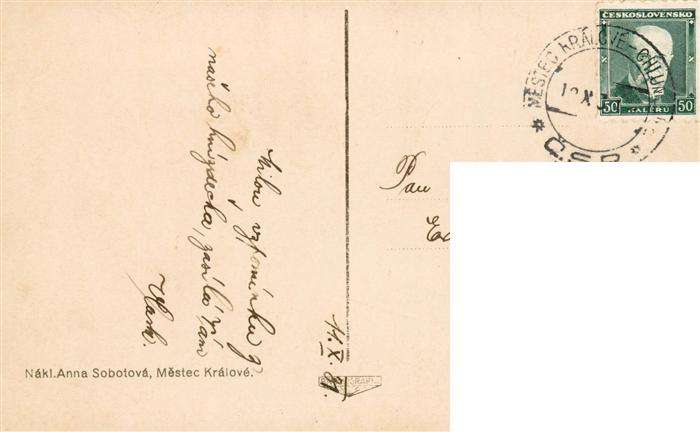 ČESKOSLOVENSKO
50 HALÉRŮ 50
MĚSTEC KRÁLOVÉ - CHLUM
X
Č.S.P.
Milou vzpomínku z
našeho hnízdečka, zasílá Vám
Pan
11. X. 31.
Nákl. Anna Sobotová, Městec Králové.